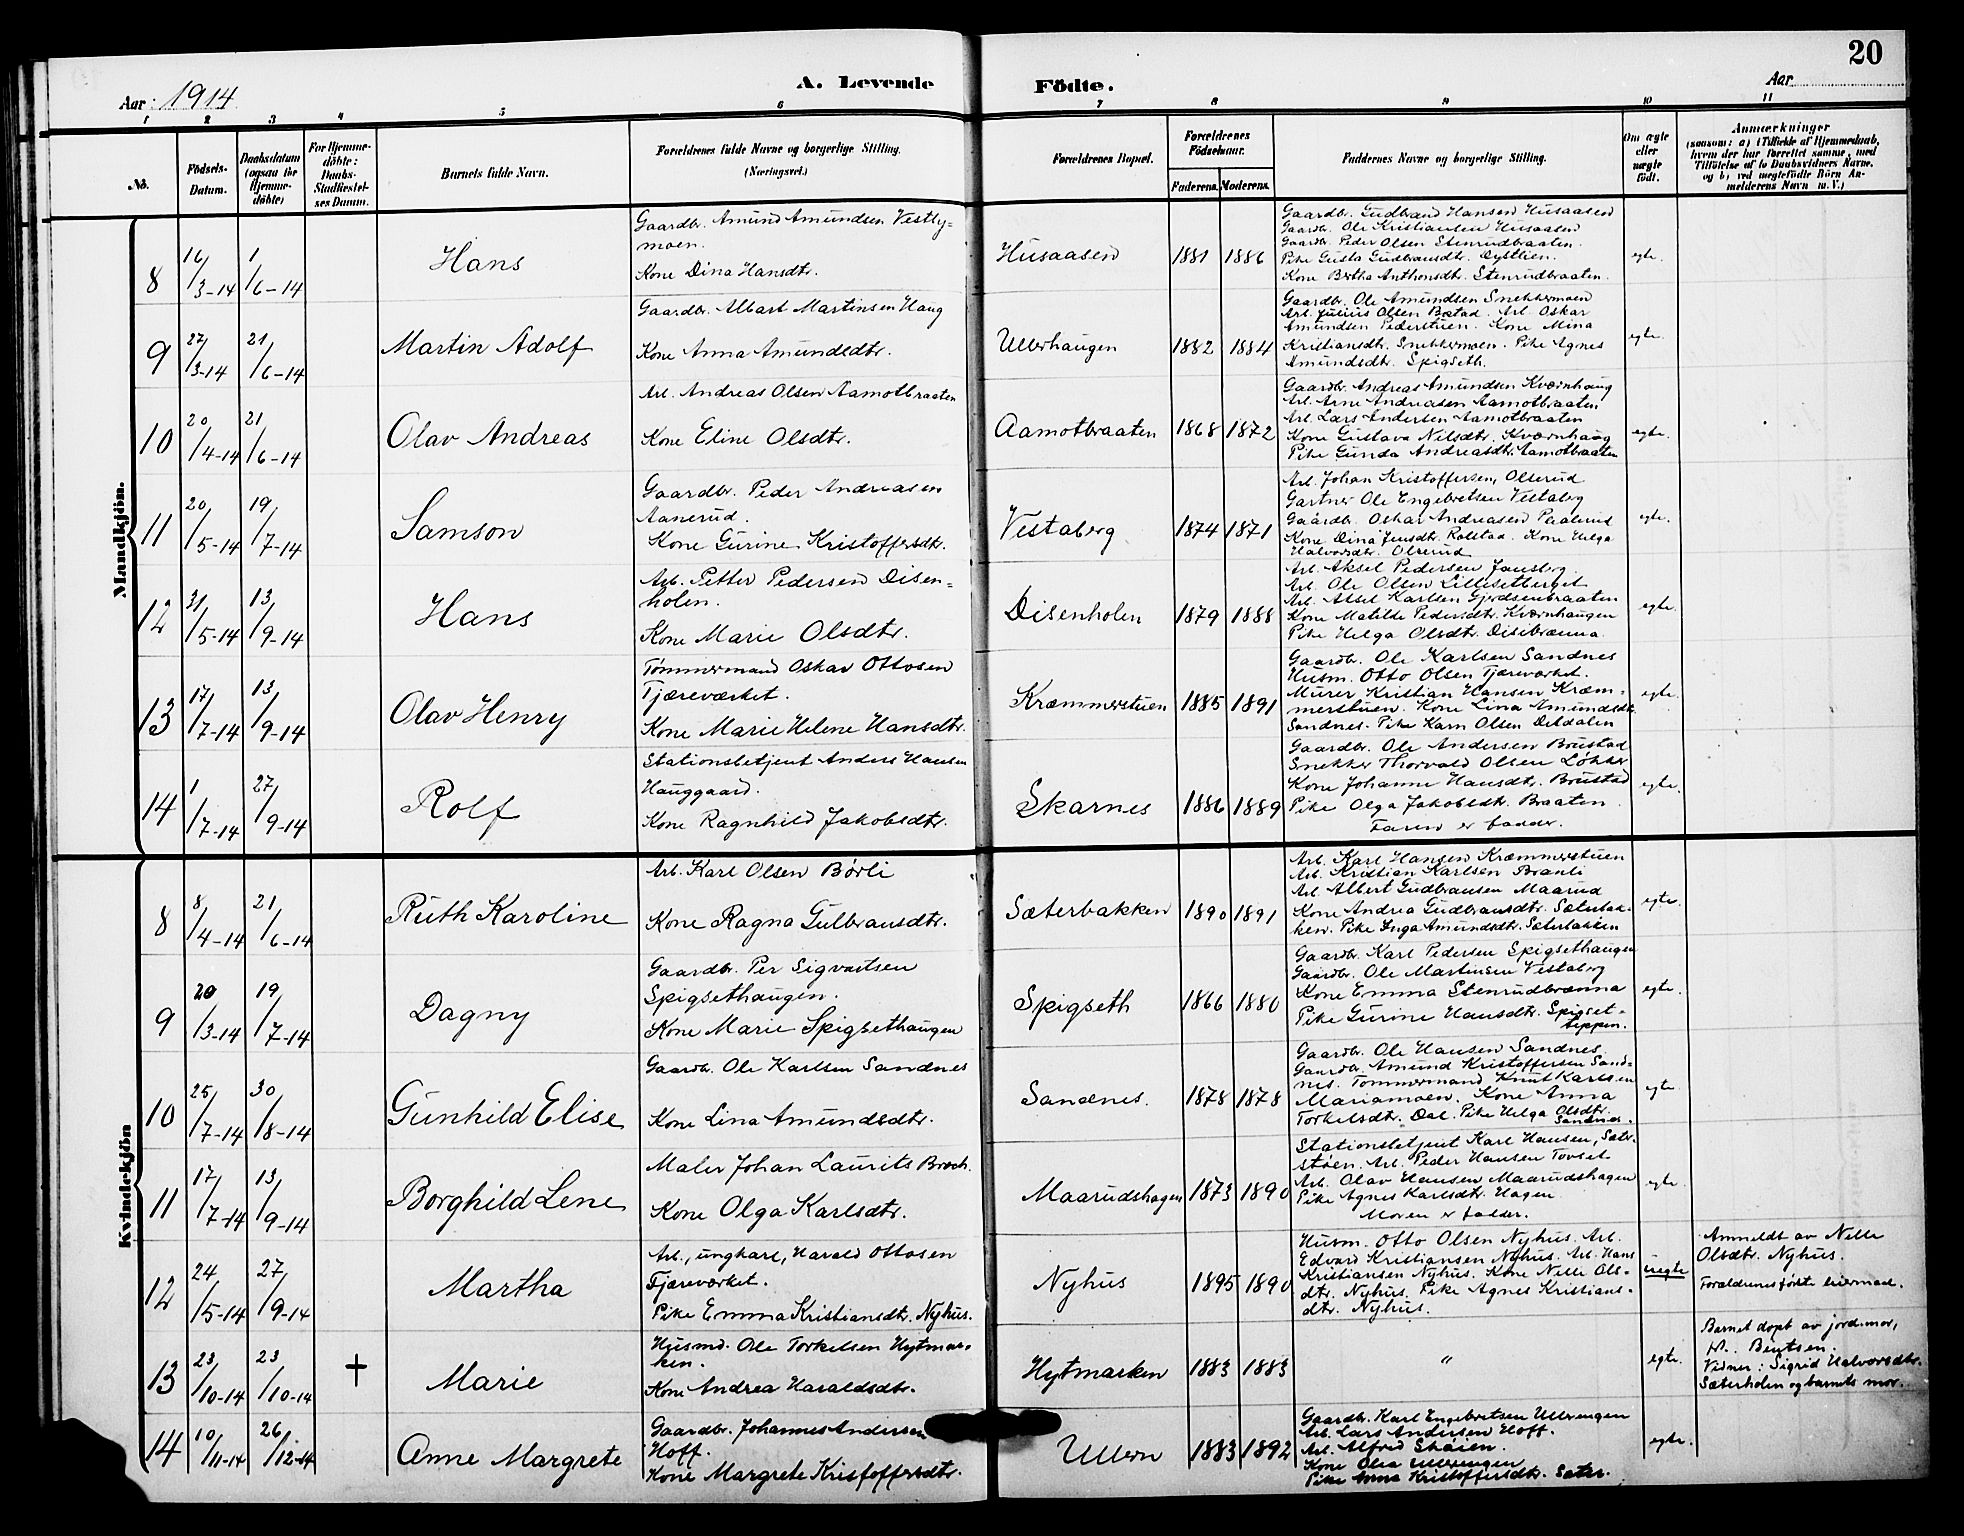 20
Aar: 1914
A. Levende Fødte.
Aar
1 2 3 4 5 6 7 8 9 10 11
No.
Fødsels-Datum.
Daabsdatum (ogsaa for Hjemme-døbte)
For Hjemme-døbte: Daabs-Stadfæstel-ses Datum.
Barnets fulde Navn.
Forældrenes fulde Navne og borgerlige Stilling.
(Næringsvei.)
Forældrenes Bopæl.
Forældrenes Fødselsaar.
Faderens. Moderens.
Faddernes Navne og borgerlige Stilling.
Om ægte eller uægte født.
Anmærkninger
(saasom: a) i Tilfælde af Hjemmedaab, hvem der har forrettet samme, med Tilføielse af to Daabsvidners Navne, og b) ved uægtefødte Børn Anmelderens Navn m. V.)
Mandkjön.
8 16/3-14 1/6-14 Hans
Gaardbr. Amund Amundsen Vestby=
moen.
Kone Dina Hansdtr.
Husaasen 1881 1886
Gaardbr. Gudbrand Hansen Husaasen
Gaardb. Ole Kristiansen Husaasen
Gaardb. Peder Olsen Stenrudbraaten.
Pike Gusta Gudbransdtr. Dystlien.
Kone Bertha Anthonsdtr. Stenrudbraaten.
egte.
9 27/3-14 21/6-14 Martin Adolf
Gaardbr. Albert Martinsen Haug
Kone Anna Amundsdtr.
Ullerhaugen 1882 1884
Gaardbr. Ole Amundsen Snekkermoen
Arb. Julius Olsen Bøstad. Arb. Oskar
Amundsen Pederstuen. Kone Mina
Kristiansdtr. Snekkermoen. Pike Agnes
Amundsdtr. Spigseth.
egte.
10 20/4-14 21/6-14 Olav Andreas
Arb. Andreas Olsen Aamotbraaten
Kone Eline Olsdtr.
Aamotbraaten 1868 1872
Gaardbr. Andreas Amundsen Kværnhaug
Arb. Arne Andreasen Aamotbraaten
Arb. Lars Andersen Aamotbraaten
Kone Gustava Nilsdtr. Kværnhaug
Pike Gunda Andreasdtr. Aamotbraaten
egte.
11 20/5-14 19/7-14 Samson
Gaardbr. Peder Andreasen
Aanerud.
Kone Gurine Kristoffersdtr.
Vestaberg 1874 1871
Arb. Johan Kristoffersen, Olserud
Gartner Ole Engebretsen Vestaberg
Gaardbr. Oskar Andreasen Paalerud
Kone Dina Jensdtr. Rolstad. Kone Helga
Halvorsdtr. Olserud
egte.
12 31/5-14 13/9-14 Hans
Arb. Petter Pedersen Disen=
holen.
Kone Marie Olsdtr.
Disenholen 1879 1888
Arb. Aksel Pedersen Jonsberg.
Arb. Ole Olsen Lillesetberget
Arb. Aksel Karlsen Gjerdsenbraaten
Kone Matilde Pedersdtr. Kværnhaugen
Pike Helga Olsdtr. Disibrænna.
egte.
13 17/7-14 13/9-14 Olav Henry
Tømmermand Oskar Ottosen
Tjæreværket.
Kone Marie Helene Hansdtr.
Kræmmerstuen 1885 1891
Gaardbr. Ole Karlsen Sandnes
Husm. Otto Olsen Tjæreværket.
Murer Kristian Hansen Kræm-
merstuen. Kone Lina Amundsdtr.
Sandnes. Pike Karn Olsen Deldalen
egte.
14 1/7-14 27/9-14 Rolf
Stationsbetjent Anders Hansen
Hauggaard.
Kone Ragnhild Jakobsdtr.
Skarnes 1886 1889
Gaardbr. Ole Andersen Brustad
Snekker Thorvald Olsen Løkker
Kone Johanne Hansdtr. Brustad
Pike Olga Jakobsdtr. Braaten.
Faren er fadder.
egte.
Kvindekjön
8 8/4-14 21/6-14 Ruth Karoline
Arb. Karl Olsen Børli
Kone Ragna Gulbransdtr.
Sæterbakken 1890 1891
Arb. Karl Hansen Kræmmerstuen
Arb. Kristian Karlsen Branli
Arb. Albert Gudbransen Maarud
Kone Andrea Gudbransdtr. Sæterbak-
ken. Pike Inga Amundsdtr. Sæterbakken
egte.
9 20/3-14 19/7-14 Dagny
Gaardbr. Per Sigvartsen
Spigsethaugen.
Kone Marie Spigsethaugen
Spigseth 1866 1880
Gaardbr. Karl Pedersen Spigsethaugen
Gaardbr. Ole Martinsen Vestaberg
Kone Emma Stenrudbrænna
Pike Gurine Hansdtr. Spigset-
teppen.
egte.
10 25/7-14 30/8-14 Gunhild Elise
Gaardbr. Ole Karlsen Sandnes
Kone Lina Amundsdtr.
Sandnes. 1878 1878
Gaardbr. Ole Hansen Sandnes.
Gaardbr. Amund Kristoffersen Sand-
nes. Tømmermand Knut Karlsen
Mariamoen. Kone Anna
Torkelsdtr. Dal. Pike Helga Olsdtr.
Sandnes.
egte
11 17/7-14 13/9-14 Borghild Lene
Maler Johan Laurits Broch.
Kone Olga Karlsdtr.
Maarudshagen 1873 1890
Stationsbetjent Karl Hansen, Sæter-
støen. Arb. Peder Hansen Tovset
Arb. Olav Hansen Maarudshagen
Pike Agnes Karlsdtr. Hagen.
Moren er fadder.
egte.
12 24/5-14 27/9-14 Martha
Arb., ungkarl, Harald Ottosen
Tjæreværket.
Pike Emma Kristiansdtr. Nyhus.
Nyhus 1895 1890
Husm. Otto Olsen Nyhus. Arb.
Edvard Kristiansen Nyhus. Arb. Hans
Kristiansen Nyhus. Kone Nelle Ols-
dtr. Nyhus. Pike Agnes Kristians-
dtr. Nyhus.
uegte
Anmeldt av Nelle
Olsdtr. Nyhus.
Forældrenes første leiermaal.
13 23/10-14 23/10-14 † Marie
Husmd. Ole Torkelsen Hytmar-
ken.
Kone Andrea Haraldsdtr.
Hytmarken 1883 1883
"
egte.
Barnet døpt av jordmor,
Bentsen.
Vidner: Sigrid Halvorsdtr.
Sæterholen og barnets mor.
14 10/11-14 26/12-14 Anne Margrete
Gaardbr. Johannes Andersen
Hoff.
Kone Margrete Kristoffersdtr.
Ullern 1883 1892
Gaardbr. Karl Engebretsen Ullerengen
Arb. Lars Andersen Hoff.
Arb. Alfred Skøien.
Kone Olea Ullerengen
Pike Anna Kristoffersdtr. Sæter.
egte.